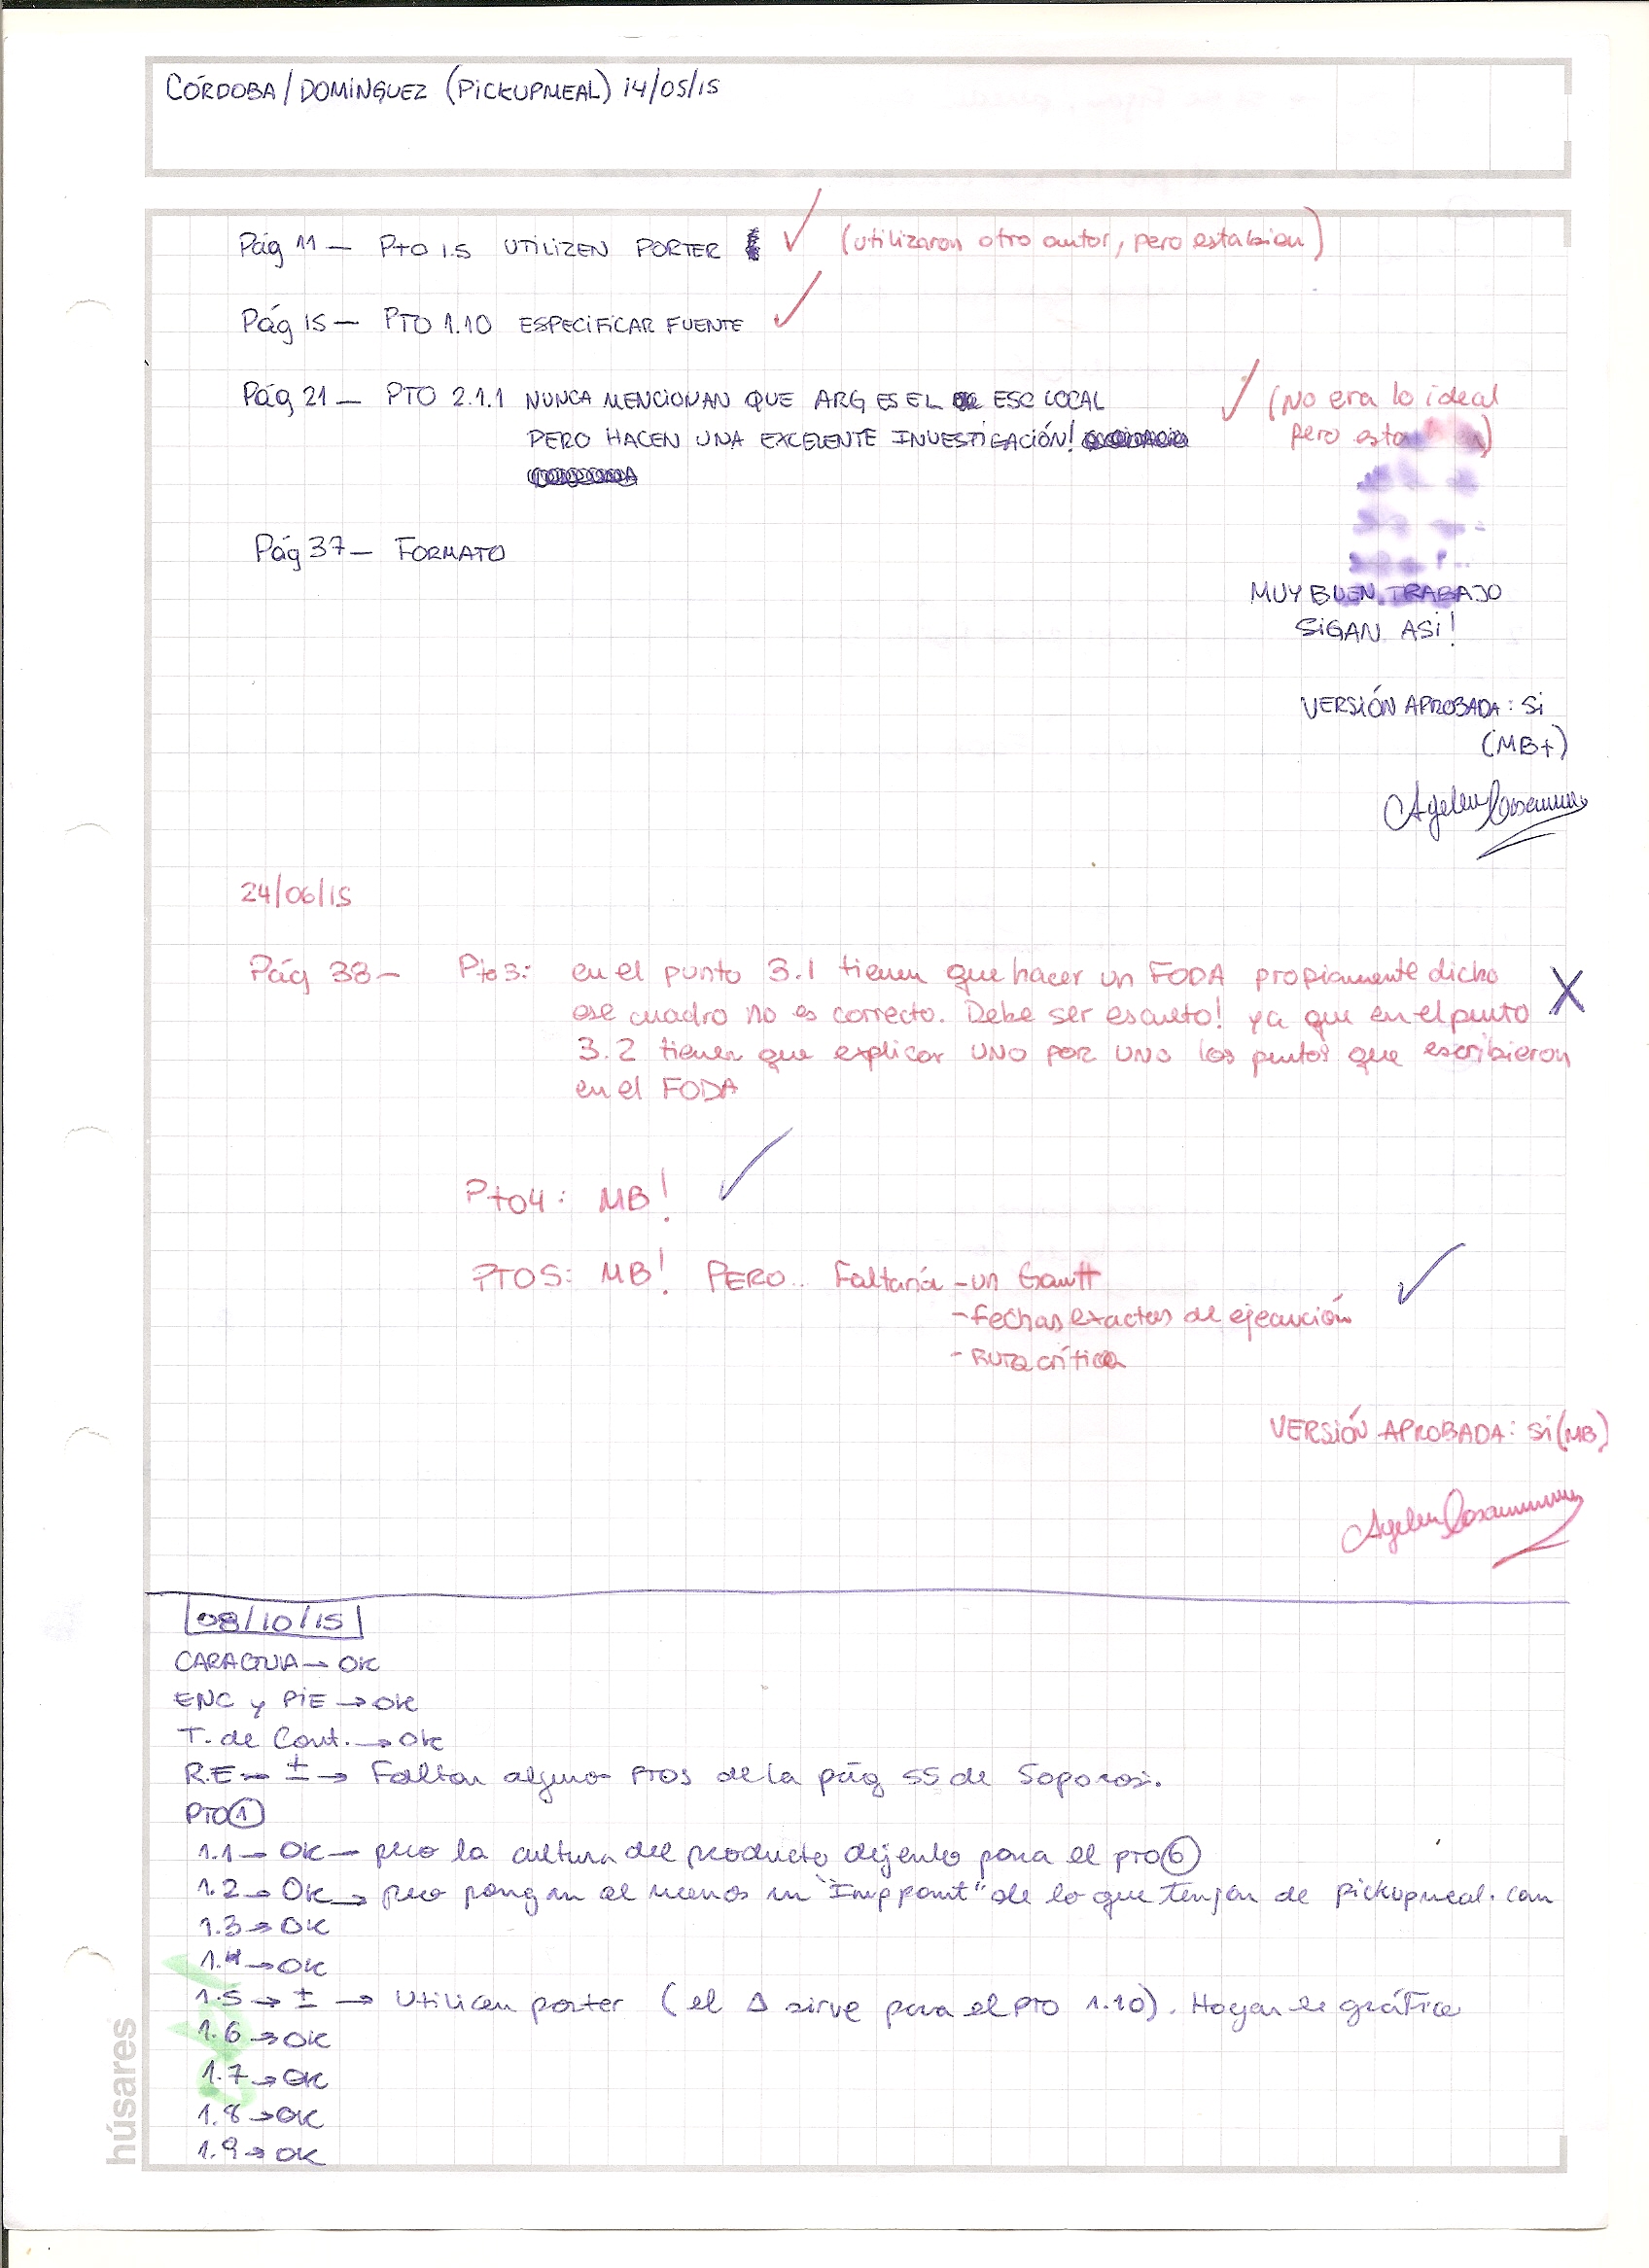 CÓRDOBA/DOMINGUEZ (PICKUPMEAL) 14/05/15
Pág 11 — Pto 1.5 UTILIZEN PORTER ✓ (utilizaron otro autor, pero esta bien)
Pág 15 — PTO 1.10 ESPECIFICAR FUENTE ✓
Pág 21 — PTO 2.1.1 NUNCA MENCIONAN QUE ARG ES EL ESC LOCAL ✓ (No era lo ideal
PERO HACEN UNA EXCELENTE INVESTIGACIÓN! pero esta
Pág 37 — FORMATO
MUY BUEN TRABAJO
SIGAN ASI!
VERSIÓN APROBADA: Si
(MB+)
24/06/15
Pág 38 — Pto 3: en el punto 3.1 tienen que hacer un FODA propiamente dicho X
ese cuadro no es correcto. Debe ser escueto! ya que en el punto
3.2 tienen que explicar UNO POR UNO los puntos que escribieron
en el FODA
Pto 4: MB! ✓
PTO 5: MB! PERO.. Faltaría - un Gantt ✓
- Fechas exactas de ejecución
- Ruta crítica
VERSIÓN APROBADA: Si (MB)
08/10/15
CARATULA → OK
ENC y PIE → OK
T. de Cont. → OK
R.E → ± → Faltan algunos PTOS de la pág 55 de Soporosi.
PTO 1
1.1 — OK — pero la cultura del producto dejenlo para el pto 6
1.2 → OK → pero pongan al menos un "Imp pant" de lo que tengan de pickupmeal.com
1.3 → OK
1.4 → OK
1.5 → ± → Utilicen porter (el Δ sirve para el pto 1.10). Hagan el gráfico
1.6 → OK
1.7 → OK
1.8 → OK
1.9 → OK
húsares